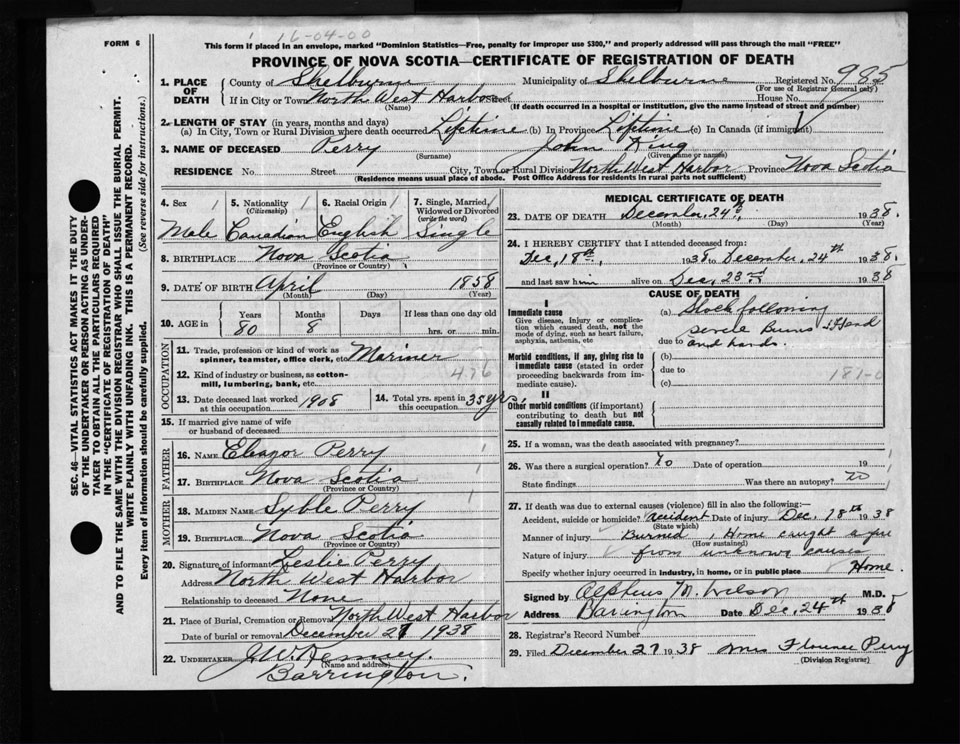 16-04-00
FORM 6
This form if placed in an envelope, marked "Dominion Statistics—Free, penalty for improper use $300," and properly addressed will pass through the mail "FREE"
PROVINCE OF NOVA SCOTIA—CERTIFICATE OF REGISTRATION OF DEATH
1. PLACE OF DEATH County of Shelburne Municipality of Shelburne Registered No. 985
(For use of Registrar General only)
If in City or Town North West Harbor Street House No.
(Name) (If death occurred in a hospital or institution, give the name instead of street and number)
2. LENGTH OF STAY (in years, months and days)
(a) In City, Town or Rural Division where death occurred Lifetime (b) In Province Lifetime (c) In Canada (if immigrant)
3. NAME OF DECEASED Perry John King
(Surname) (Given name or names)
RESIDENCE No. Street City, Town or Rural Division North West Harbor Province Nova Scotia
(Residence means usual place of abode. Post Office Address for residents in rural parts not sufficient)
4. Sex 5. Nationality (Citizenship) 6. Racial Origin 7. Single, Married, Widowed or Divorced (write the word)
Male Canadian English Single
8. BIRTHPLACE Nova Scotia
(Province or Country)
9. DATE OF BIRTH April 1858
(Month) (Day) (Year)
10. AGE in Years Months Days If less than one day old
80 8 hrs. or min.
OCCUPATION
11. Trade, profession or kind of work as spinner, teamster, office clerk, etc. Mariner
12. Kind of industry or business, as cotton-mill, lumbering, bank, etc. 476
13. Date deceased last worked at this occupation 1908 14. Total yrs. spent in this occupation 35 yrs.
15. If married give name of wife or husband of deceased
FATHER
16. NAME Eleazor Perry
17. BIRTHPLACE Nova Scotia
(Province or Country)
MOTHER
18. MAIDEN NAME Syble Perry
19. BIRTHPLACE Nova Scotia
(Province or Country)
20. Signature of informant Leslie Perry
Address North West Harbor
Relationship to deceased None
21. Place of Burial, Cremation or Removal North West Harbor
Date of burial or removal December 27 1938
22. UNDERTAKER J.W. Kenney.
(Name and address)
Barrington.
MEDICAL CERTIFICATE OF DEATH
23. DATE OF DEATH December 24th 1938.
(Month) (Day) (Year)
24. I HEREBY CERTIFY that I attended deceased from:
Dec, 18th, 1938 to December, 24th 1938.
and last saw him alive on Dec, 23rd 1938
CAUSE OF DEATH
I
Immediate cause (a) Shock following
Give disease, injury or complication which caused death, not the mode of dying, such as heart failure, asphyxia, asthenia, etc
severe Burns of Head
due to and hands.
Morbid conditions, if any, giving rise to immediate cause (stated in order proceeding backwards from immediate cause). (b)
due to 181-0
(c)
II
Other morbid conditions (if important) contributing to death but not causally related to immediate cause.
25. If a woman, was the death associated with pregnancy?
26. Was there a surgical operation? No Date of operation 19
State findings Was there an autopsy? No
27. If death was due to external causes (violence) fill in also the following:
Accident, suicide or homicide? accident Date of injury Dec, 18th 1938
(State which)
Manner of injury Burned, Home caught a fire
(How sustained)
Nature of injury from unknown causes
Specify whether injury occurred in industry, in home, or in public place Home.
Signed by Alpheus M. Wilson M.D.
Address Barrington Date Dec, 24th 1938
28. Registrar's Record Number
29. Filed December 27 1938 Mrs Florence Perry
(Division Registrar)
SEC. 46—VITAL STATISTICS ACT MAKES IT THE DUTY OF THE UNDERTAKER OR PERSON ACTING AS UNDERTAKER TO OBTAIN ALL THE PARTICULARS REQUIRED IN THE "CERTIFICATE OF REGISTRATION OF DEATH"
AND TO FILE THE SAME WITH THE DIVISION REGISTRAR WHO SHALL ISSUE THE BURIAL PERMIT.
WRITE PLAINLY WITH UNFADING INK. THIS IS A PERMANENT RECORD.
Every item of information should be carefully supplied. (See reverse side for instructions.)